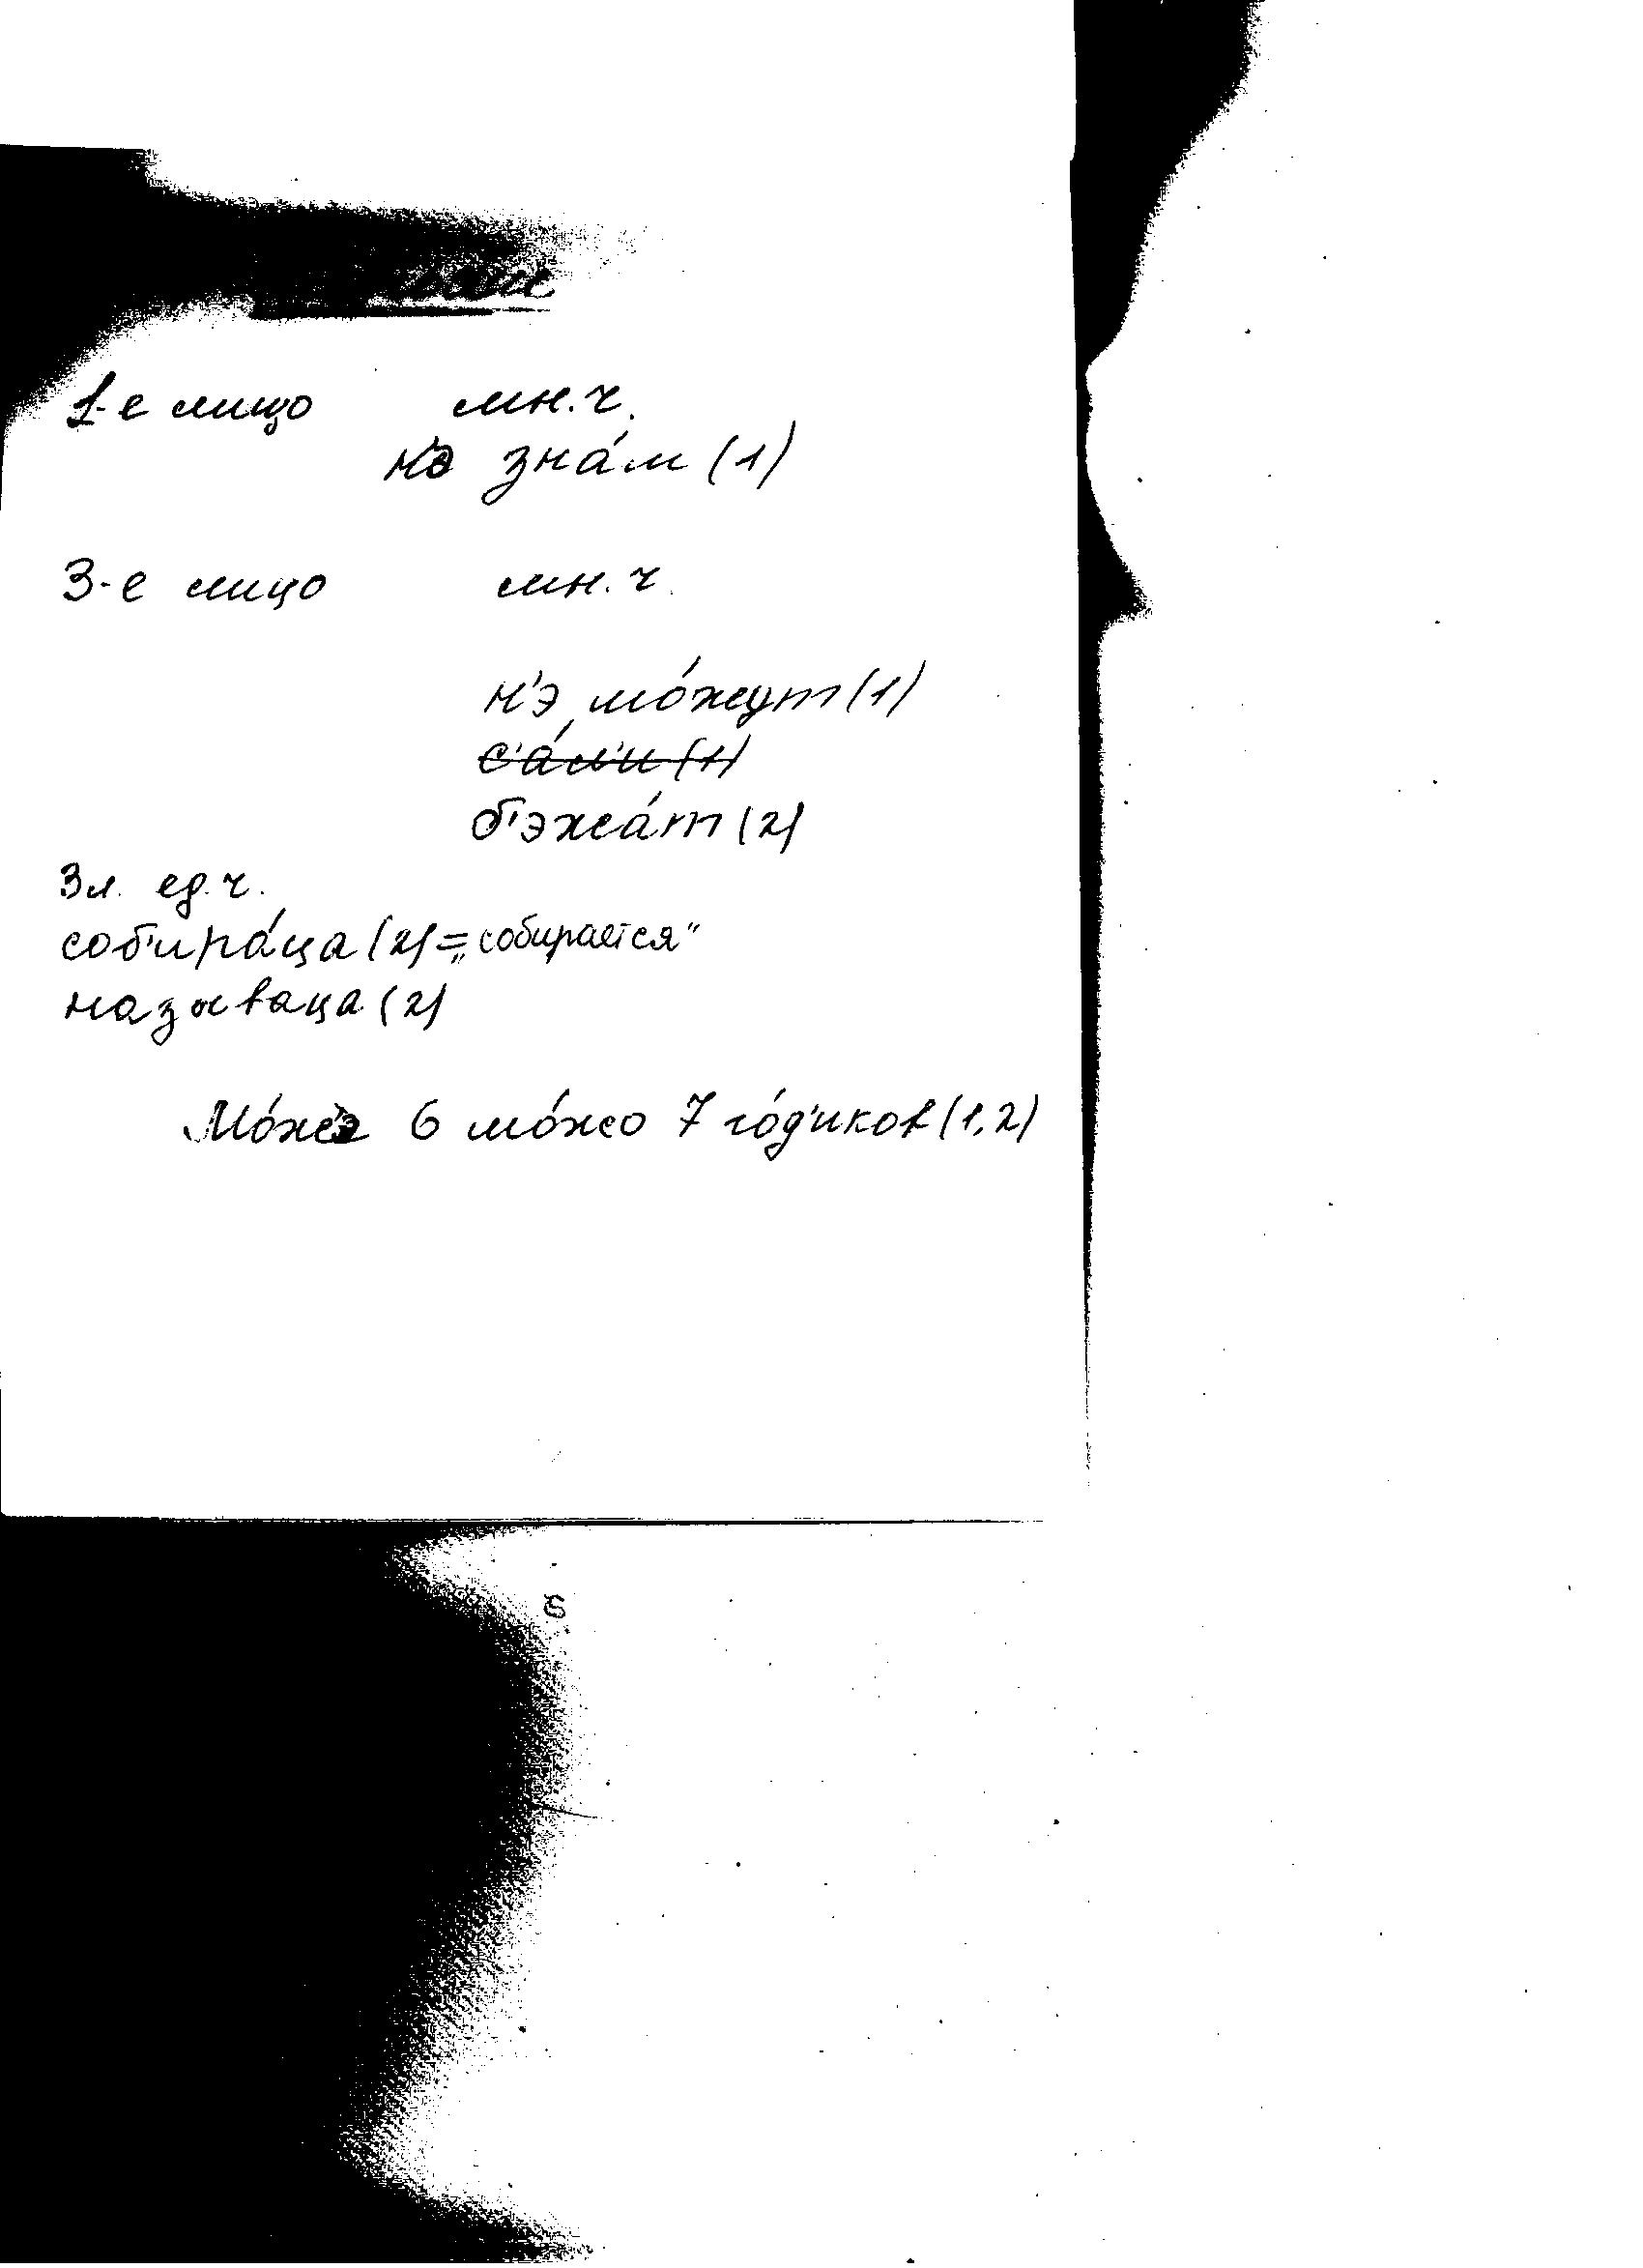 1-е лицо мн.ч.
н'э зна́м (1)
3-е лицо мн.ч.
н'э мо́жут (1)
с'а́л'и (1)
б'эжа́т (2)
3 л. ед.ч.
соб'ира́ца (2) = „собирается"
называца (2)
6 мо́жо 7 го́д'иков (1,2)
6